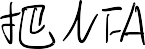 把NFA